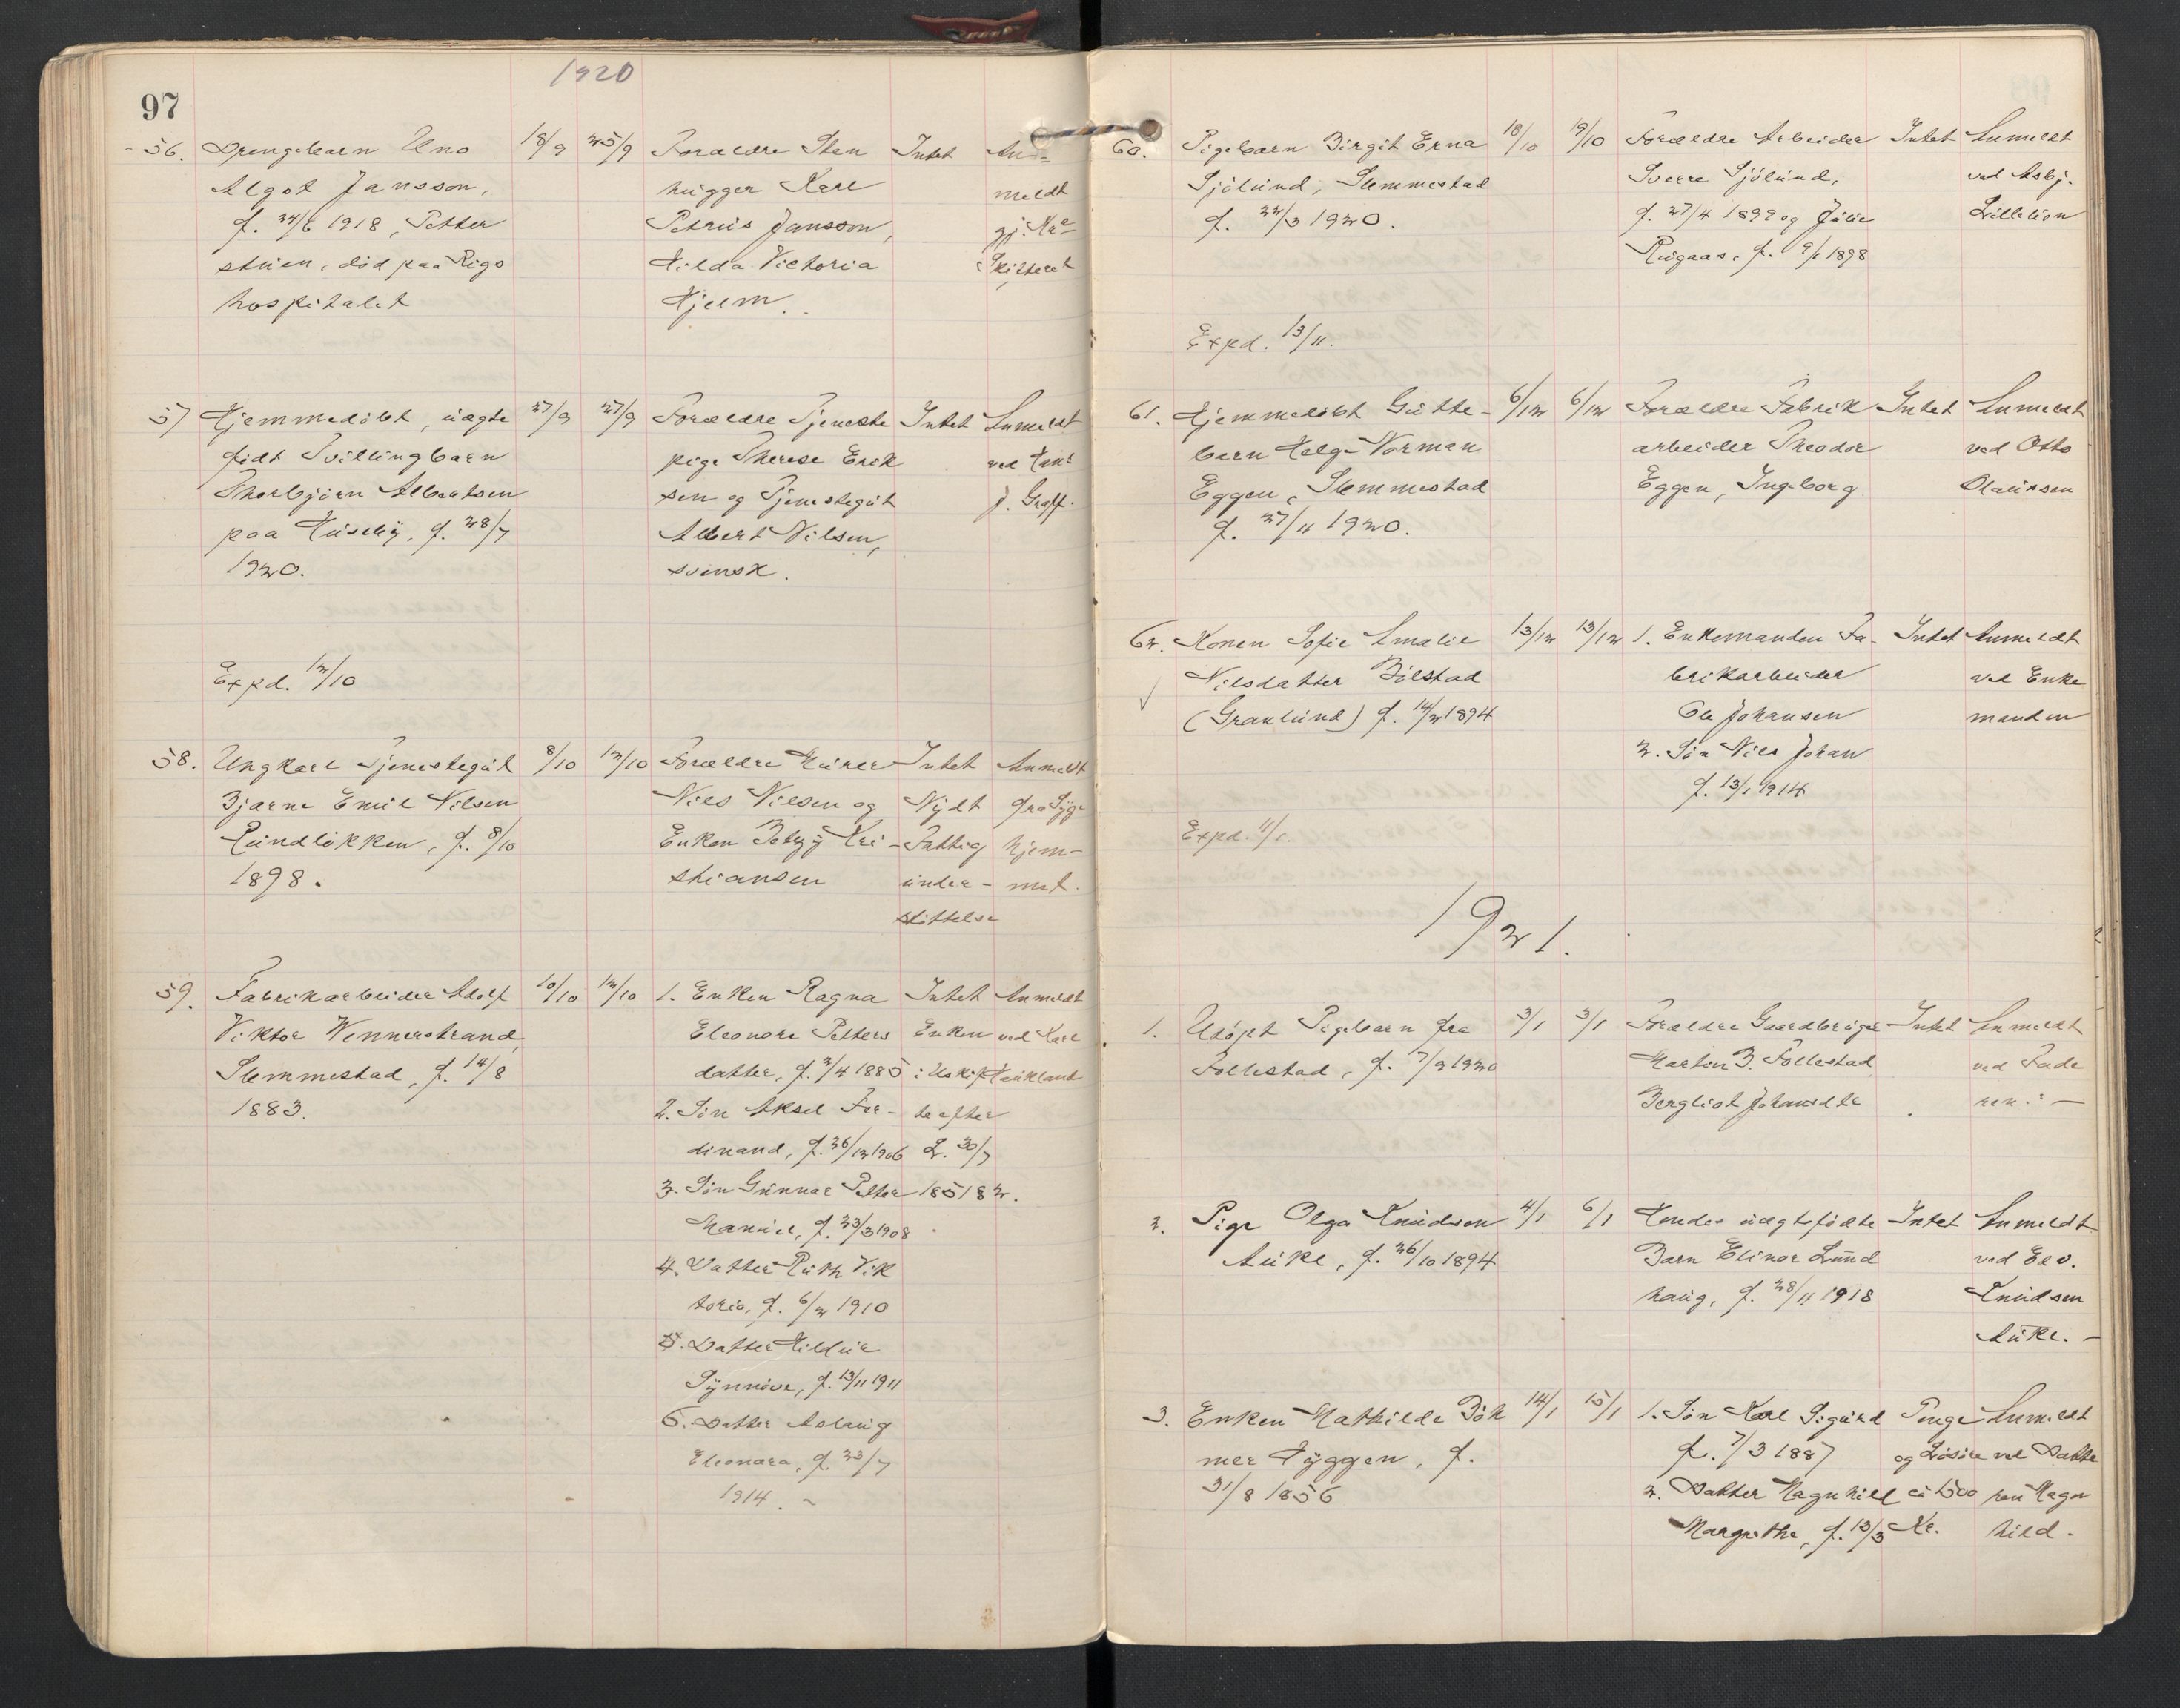 1920
97
56. Drengebarn Uno
Algot Jansson,
f. 24/6 1918, Petter
stuen, död paa Rigs
hospitalet
18/9 25/9
Forældre Sten
hugger Karl
Petrus Jansson,
Hilda Victoria
Hjelm.
Intet
An=
meldt
gj.
Skifteret
57 Hjemmedöbt, uægte
födt Tvillingbarn
Thorbjörn Albertsen
paa Huseby, f. 28/7
1920.
27/9 27/9
Forældre Tjeneste
pige Therese Erik
sen og Tjenestegut
Albert Nilsen,
svensk.
Intet
Anmeldt
ved
J. Graff.
Expd. 12/10
58. Ungkarl Tjenestegut
Bjarne Emil Nilsen
Rundlökken, f. 8/10
1898.
8/10 12/10
Forældre Murer
Nils Nilsen og
Enken Betzy Kri-
stiansen
Intet
Nydt
Fattig
under-
stöttelse
Anmeldt
fra Syge
hjem-
met.
59. Fabrikarbeider Adolf
Viktor Wennerstrand,
Slemmestad, f. 14/8
1883.
10/10 12/10
1. Enken Ragna
Eleonore Petters
datter, f. 2/4 1885
2. Sön Aksel Fer-
dinand, f. 26/12 1906
3. Sön Gunnar Petter
Manuel, f. 23/3 1908
4. Datter Ruth Vik
toria, f. 6/2 1910
5. Datter Hildur
Synnöve, f. 13/11 1911
6. Datter Aslaug
Eleonora, f. 23/7
1914. -
Intet
Enken
i Uskif
te efter
L. 30/7
1851 § 2.
Anmeldt
ved Karl
Haukland
60. Pigebarn Birgit Erna
Sjölund, Slemmestad
f. 22/3 1920.
18/10 19/10
Forældre Arbeider
Sverre Sjölund,
f. 27/4 1899 og Julie
Rugaas, f. 9/1 1898
Intet
Anmeldt
ved Asbj.
Lillelien
Expd. 13/11.
61. Hjemmedöbt Gutte-
barn Helge Norman
Eggen, Slemmestad
f. 27/11 1920.
6/12 6/12
Forældre Fabrik
arbeider Theodor
Eggen, Ingeborg
Intet
Anmeldt
ved Otto
Olaussen
62. Konen Sofie Amalie
Nilsdatter Bölstad
(Granlund) f. 14/2 1894
13/12 13/12
1. Enkemanden Fa-
brikarbeider
Ole Johansen
2. Sön Nils Johan
f. 13/1 1914
Intet
Anmeldt
ved Enke
manden
Expd. 11/1.
1921.
1. Udöpt Pigebarn fra
Follestad, f. 7/9 1920
3/1 3/1
Forældre Gaardbruger
Martin B. Follestad
Bergliot Johansdtr
Intet
Anmeldt
ved Fade
ren. -
2. Pige Olga Knudsen
Auke, f. 26/10 1894
4/1 6/1
Hendes uægtefödte
Barn Elinor Lund
haug, f. 28/11 1918
Intet
Anmeldt
ved Edv.
Knudsen
Auke. -
3. Enken Mathilde Böh
mer Hyggen, f.
31/8 1856
14/1 15/1
1. Sön Karl Sigurd
f. 7/3 1887
2. Datter Magnhild
Margrethe, f. 13/3
Penge
og Lösöre
ca 1500
Kr.
Anmeldt
ved Datte
ren Magn
hild.